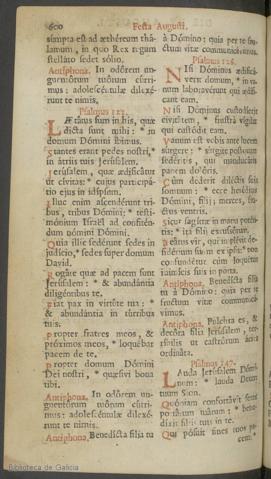 600 Festa Augusti.
sumpta est ad æthéreum thá-
lamum, in quo Rex regum
stelláto sedet sólio.
Antiphona. In odórem un-
guentórum tuórum cúrri-
mus: adolescéntulæ dilexé-
runt te nimis.
Psalmus 121.
LÆtátus sum in his, quæ
dicta sunt mihi: * in
domum Dómini íbimus.
Stantes erant pedes nostri, *
in átriis tuis Jerúsalem.
Jerúsalem, quæ ædificátur
ut cívitas: * cujus participá-
tio ejus in idípsum.
Illuc enim ascendérunt tri-
bus, tribus Dómini: * testi-
mónium Israël ad confitén-
dum nómini Dómini.
Quia illic sedérunt sedes in
judício, * sedes super domum
David.
Rogáte quæ ad pacem sunt
Jerúsalem: * & abundántia
diligéntibus te.
Fiat pax in virtúte tua: *
& abundántia in túrribus
tuis.
Propter fratres meos, &
próximos meos, * loquébar
pacem de te.
Propter domum Dómini
Dei nostri, * quæsívi bona
tibi.
Antiphona. In odórem un-
guentórum tuórum cúrri-
mus: adolescéntulæ dilexé-
runt te nimis.
Antiphona. Benedícta fília tu
à Dómino: quia per te fru-
ctum vitæ communicávimus.
Psalmus 126.
NIsi Dóminus ædificá-
verit domum, * in va-
num laboravérunt qui ædífi-
cant eam.
Nisi Dóminus custodíerit
civitátem, * frustrà vígilat
qui custódit eam.
Vanum est vobis ante lucem
súrgere: * súrgite postquam
sedéritis, qui manducátis
panem dolóris.
Cùm déderit diléctis suis
somnum: * ecce hæréditas
Dómini, fílii; merces, fru-
ctus ventris.
Sicut sagíttæ in manu potén-
tis: * ita fílii excussórum.
Beátus vir, qui implévit de-
sidérium suum ex ipsis: * non
confundétur cùm loquétur
inimícis suis in porta.
Antiphona. Benedícta fília
tu à Dómino: quia per te
fructum vitæ communicá-
vimus.
Antiphona. Pulchra es, &
decóra fília Jerúsalem, ter-
ríbilis ut castrórum ácies
ordináta.
Psalmus 147.
LAuda Jerúsalem Dómi-
num: * lauda Deum
tuum Sion.
Quóniam confortávit seras
portárum tuárum: * bene-
díxit fíliis tuis in te.
Qui pósuit fines tuos pa-
cem: *
Biblioteca de Galicia